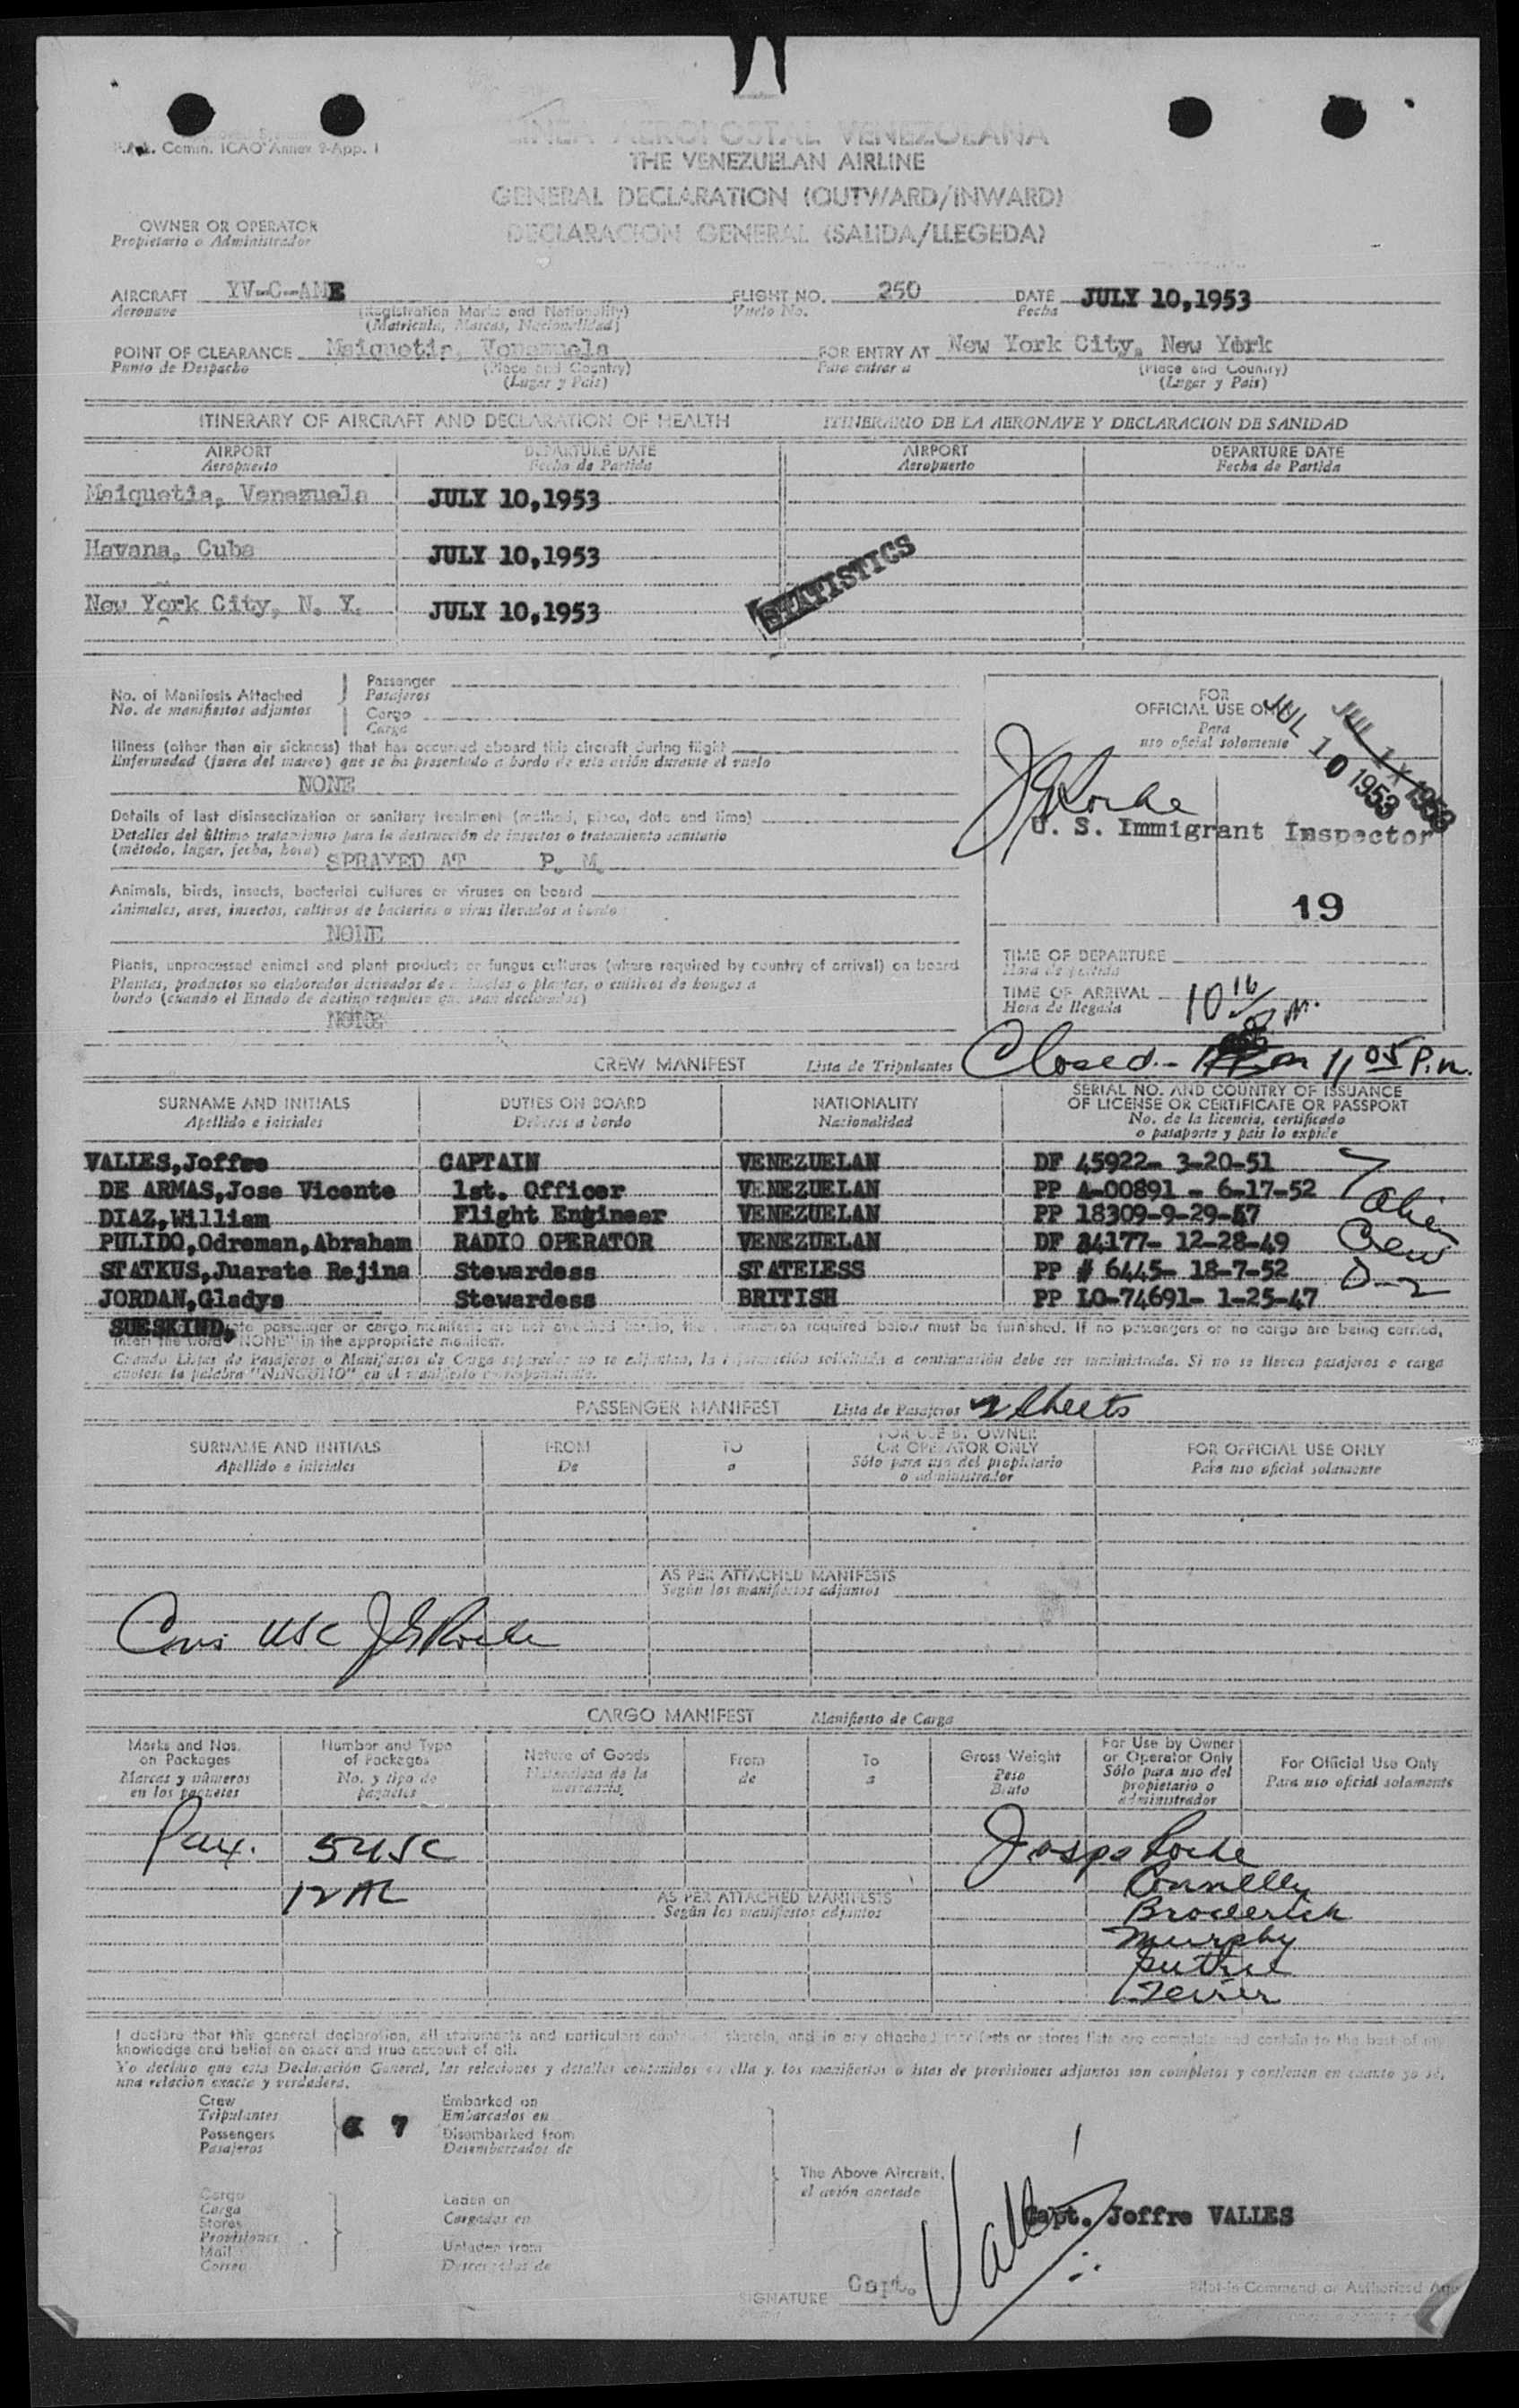 Comm. ICAO Annex 9-App. 1
LINEA AEROPOSTAL VENEZOLANA
THE VENEZUELAN AIRLINE
GENERAL DECLARATION (OUTWARD/INWARD)
DECLARACION GENERAL (SALIDA/LLEGEDA)
OWNER OR OPERATOR
Propietario o Administrador
AIRCRAFT YV-C-AME FLIGHT NO. 250 DATE JULY 10,1953
Aeronave (Registration Marks and Nationality) Vuelo No. Fecha
(Matricula, Marcas, Nacionalidad)
POINT OF CLEARANCE Maiquetia, Venezuela FOR ENTRY AT New York City, New York
Punto de Despacho (Place and Country) Para entrar a (Place and Country)
(Lugar y Pais) (Lugar y Pais)
ITINERARY OF AIRCRAFT AND DECLARATION OF HEALTH ITINERARIO DE LA AERONAVE Y DECLARACION DE SANIDAD
AIRPORT DEPARTURE DATE AIRPORT DEPARTURE DATE
Aeropuerto Fecha de Partida Aeropuerto Fecha de Partida
Maiquetia, Venezuela JULY 10,1953
Havana, Cuba JULY 10,1953
STATISTICS
New York City, N. Y. JULY 10,1953
No. of Manifests Attached Passenger
No. de manifiestos adjuntos Pasajeros
Cargo
Carga
FOR
OFFICIAL USE ONLY
Para
uso oficial solamente
JUL 10 1953
Illness (other than air sickness) that has occurred aboard this aircraft during flight
Enfermedad (fuera del mareo) que se ha presentado a bordo de este avión durante el vuelo
NONE
Details of last disinsectization or sanitary treatment (method, place, date and time)
Detalles del último tratamiento para la destrucción de insectos o tratamiento sanitario
(método, lugar, fecha, hora) SPRAYED AT P. M.
U. S. Immigrant Inspector
19
Animals, birds, insects, bacterial cultures or viruses on board
Animales, aves, insectos, cultivos de bacterias o virus llevados a bordo
NONE
Plants, unprocessed animal and plant products or fungus cultures (where required by country of arrival) on board
Plantas, productos no elaborados derivados de animales o plantas, o cultivos de hongos a
bordo (cuando el Estado de destino requiere que sean declarados)
NONE
TIME OF DEPARTURE
Hora de partida
TIME OF ARRIVAL 10 16 P.M.
Hora de llegada
CREW MANIFEST Lista de Tripulantes Closed - 11 05 P.m.
SURNAME AND INITIALS DUTIES ON BOARD NATIONALITY SERIAL NO. AND COUNTRY OF ISSUANCE
OF LICENSE OR CERTIFICATE OR PASSPORT
Apellido e iniciales Deberes a bordo Nacionalidad No. de la licencia, certificado
o pasaporte y pais lo expide
VALLES,Joffre CAPTAIN VENEZUELAN DF 45922- 3-20-51
DE ARMAS,Jose Vicente 1st. Officer VENEZUELAN PP A-00891 - 6-17-52
DIAZ,William Flight Engineer VENEZUELAN PP 18309-9-29-47
PULIDO,Odreman,Abraham RADIO OPERATOR VENEZUELAN DF 34177- 12-28-49
STATKUS,Juarate Rejina Stewardess STATELESS PP # 6445- 18-7-52
JORDAN,Gladys Stewardess BRITISH PP LO-74691- 1-25-47
7 alien
Crew
D-2
SUESKIND, passenger or cargo manifests are not attached hereto, the information required below must be furnished. If no passengers or no cargo are being carried,
insert the word "NONE" in the appropriate manifest.
Cuando Listas de Pasajeros o Manifiestos de Carga separados no se adjuntan, la información solicitada a continuación debe ser suministrada. Si no se llevan pasajeros o carga
anotese la palabra "NINGUNO" en el manifiesto correspondiente.
PASSENGER MANIFEST Lista de Pasajeros 2 sheets
SURNAME AND INITIALS FROM TO FOR USE BY OWNER
OR OPERATOR ONLY FOR OFFICIAL USE ONLY
Apellido e iniciales De a Sólo para uso del propietario
o administrador Para uso oficial solamente
AS PER ATTACHED MANIFESTS
Según los manifiestos adjuntos
CARGO MANIFEST Manifiesto de Carga
Marks and Nos.
on Packages
Marcas y números
en los paquetes
Number and Type
of Packages
No. y tipo de
paquetes
Nature of Goods
Naturaleza de la
mercancia
From
de
To
a
Gross Weight
Peso
Bruto
For Use by Owner
or Operator Only
Sólo para uso del
propietario o
administrador
For Official Use Only
Para uso oficial solamente
Pax. 5 USC
12 AL
AS PER ATTACHED MANIFESTS
Según los manifiestos adjuntos
Roche
Connelly
Broderick
Murphy
I declare that this general declaration, all statements and particulars contained therein, and in any attached manifests or stores lists are complete and contain to the best of my
knowledge and belief an exact and true account of all.
Yo declaro que esta Declaración General, las relaciones y detalles contenidos en ella y los manifiestos o listas de provisiones adjuntos son completos y contienen en cuanto yo sé,
una relacion exacta y verdadera.
Crew
Tripulantes
Passengers
Pasajeros
7
Embarked on
Embarcados en
Disembarked from
Desembarcados de
Cargo
Carga
Stores
Provisiones
Mail
Correo
Laden on
Cargados en
Unladen from
Descargados de
The Above Aircraft,
el avión anotado
Capt. Joffre VALLES
SIGNATURE Capt. Valles
Pilot-in-Command or Authorized